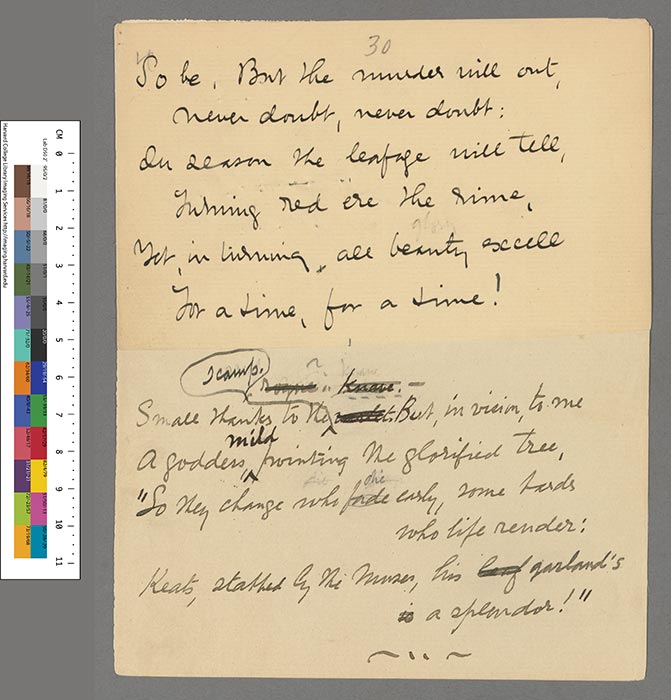 30
So be. But the murder will out,
never doubt, never doubt:
In season the leafage will tell,
Turning red ere the rime,
Yet, in turning, all beauty excell
For a time, for a time!
scamp.
Rogue or Knave.
Small thanks to the varlet. But, in vision, to me
mild
A goddess, pointing the glorified tree,
die
"So they change who fade early, some bards
who life render:
Keats, stabbed by the Muses, his leaf garland's
is a splendor!"
CM 0 1 2 3 4 5 6 7 8 9 10 11
Harvard College Library Imaging Services http://imaging.harvard.edu